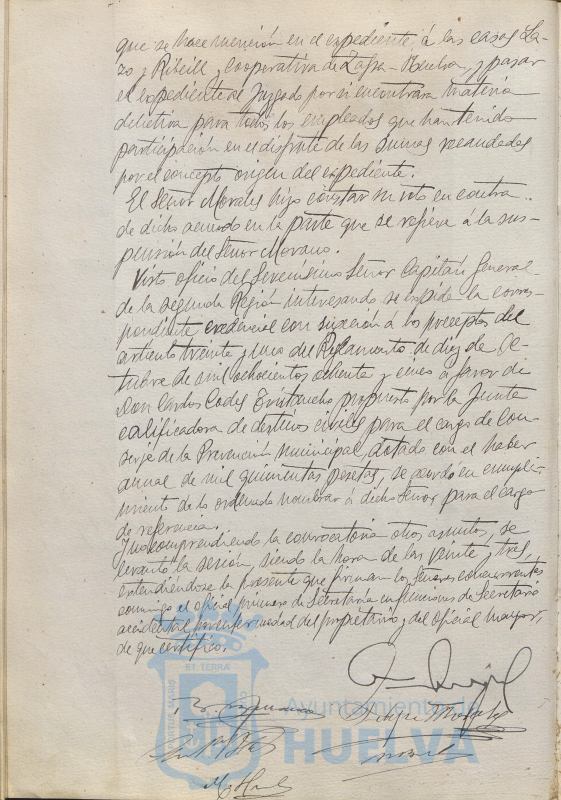 que se hace mención en el expediente, á las casas La-
zo y Ribeill y Cooperativa de Zafra-Huelva, y pasar
el expediente al Juzgado por si encontrara materia
delictiva para todos los empleados que han tenido
participación en el disfrute de las sumas recaudadas
por el concepto origen del expediente.
El Señor Morales hizo constar su voto en contra
de dicho acuerdo en la parte que se refiere á la sus-
pensión del Señor Morano.
Visto oficio del Serenísimo Señor Capitán General
de la segunda Región interesando se expida la corres-
pondiente credencial con sujeción á los preceptos del
artículo treinta y uno del Reglamento de diez de Oc-
tubre de mil ochocientos ochenta y cinco a favor de
Don Carlos propuesto por la Junta
calificadora de destinos civiles para el cargo de Con-
serje de la Prevención Municipal, dotado con el haber
anual de mil quinientas pesetas, se acordó en cumpli-
miento de lo ordenado nombrar á dicho Señor para el cargo
de referencia.
Y no comprendiendo la convocatoria otros asuntos, se
levantó la sesión, siendo la hora de las veinte y tres,
extendiéndose la presente que firman los Señores concurrentes
conmigo el oficial primero de Secretaría en funciones de Secretario
accidental por enfermedad del propietario y del Oficial mayor,
de que certifico.
ET TERRÆ
Ayuntamiento de
HUELVA